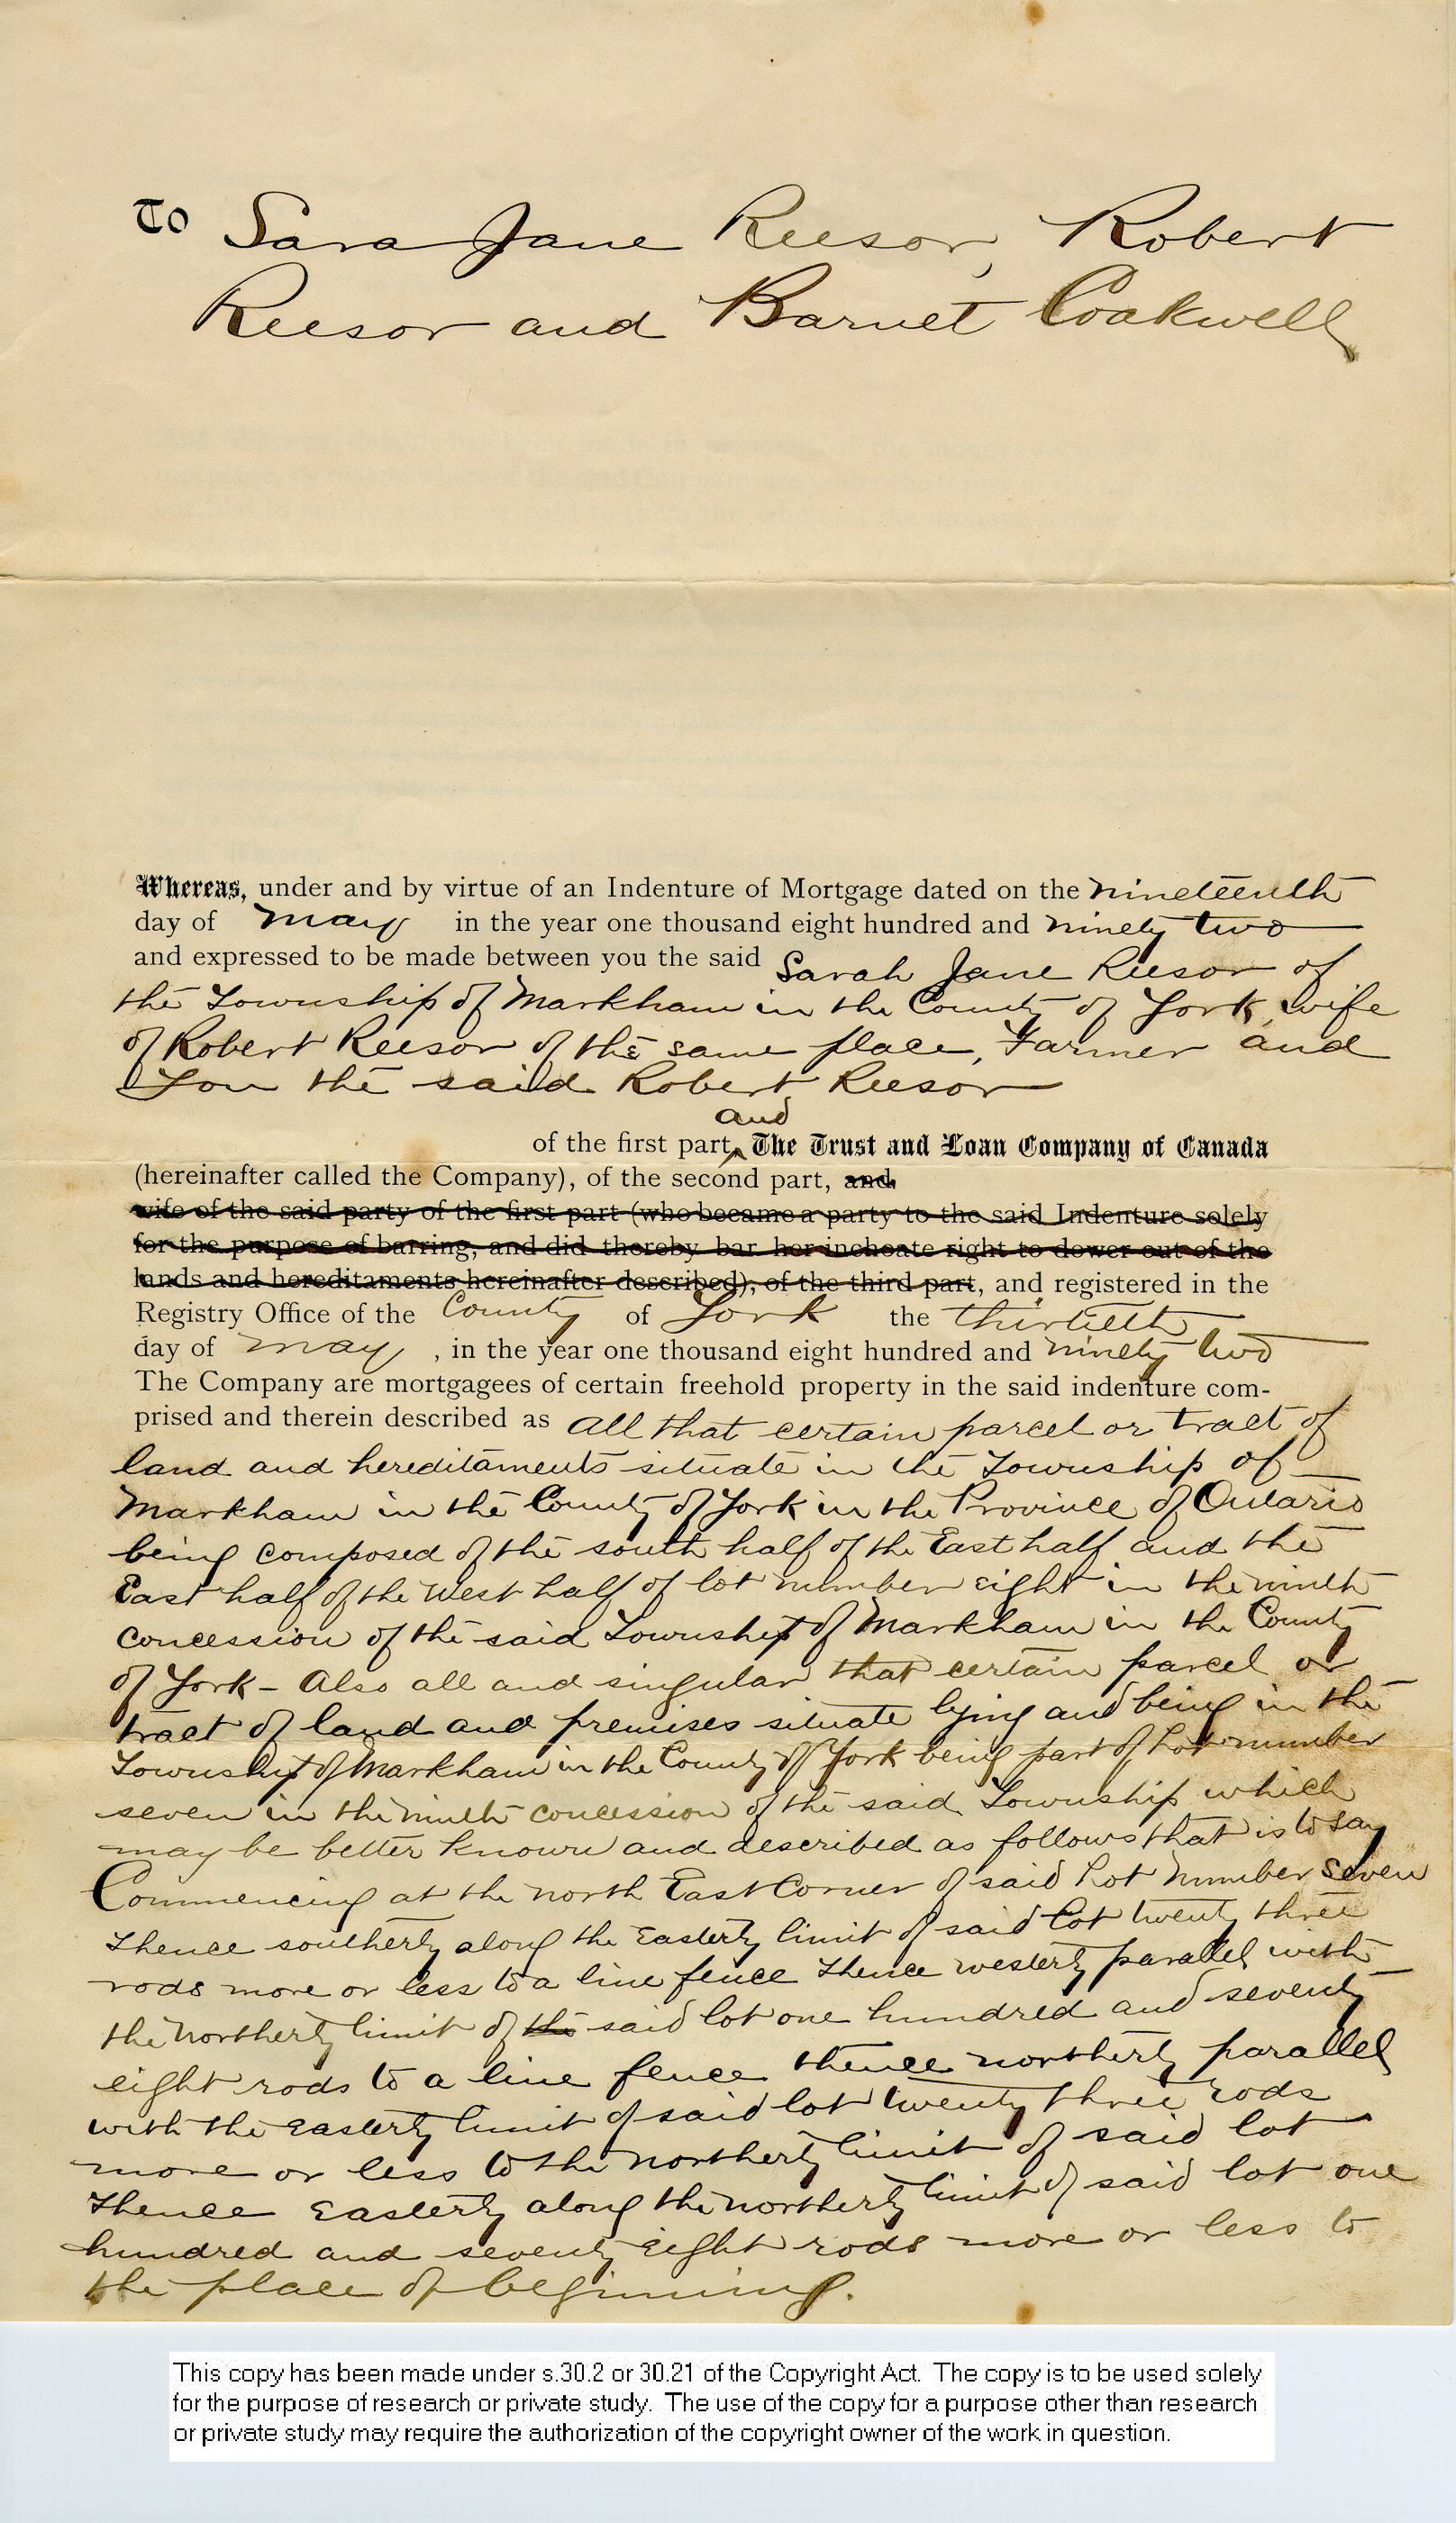 To Sara Jane Reesor, Robert
Reesor and Barnet Coakwell
Whereas, under and by virtue of an Indenture of Mortgage dated on the nineteenth
day of may in the year one thousand eight hundred and ninety two
and expressed to be made between you the said Sarah Jane Reesor of
the Township of Markham in the County of York, wife
of Robert Reesor of the same place, Farmer and
You the said Robert Reesor
and
of the first part, The Trust and Loan Company of Canada
(hereinafter called the Company), of the second part, and
wife of the said party of the first part (who became a party to the said Indenture solely
for the purpose of barring, and did thereby bar her inchoate right to dower out of the
lands and hereditaments hereinafter described), of the third part, and registered in the
Registry Office of the County of York the thirtieth
day of may, in the year one thousand eight hundred and ninety two
The Company are mortgagees of certain freehold property in the said indenture com-
prised and therein described as all that certain parcel or tract of
land and hereditaments situate in the Township of
Markham in the County of York in the Province of Ontario
being composed of the south half of the East half and the
East half of the West half of lot number eight in the ninth
concession of the said Township of Markham in the County
of York - Also all and singular that certain parcel or
tract of land and premises situate lying and being in the
Township of Markham in the County of York being part of Lot number
seven in the ninth concession of the said Township which
may be better known and described as follows that is to say
Commencing at the north East Corner of said Lot number seven
thence southerly along the Easterly limit of said lot twenty three
rods more or less to a line fence thence westerly parallel with
the northerly limit of the said lot one hundred and seventy
eight rods to a line fence thence northerly parallel
with the easterly limit of said lot twenty three rods
more or less to the northerly limit of said lot
thence Easterly along the northerly limit of said lot one
hundred and seventy eight rods more or less to
the place of beginning.
This copy has been made under s.30.2 or 30.21 of the Copyright Act. The copy is to be used solely
for the purpose of research or private study. The use of the copy for a purpose other than research
or private study may require the authorization of the copyright owner of the work in question.